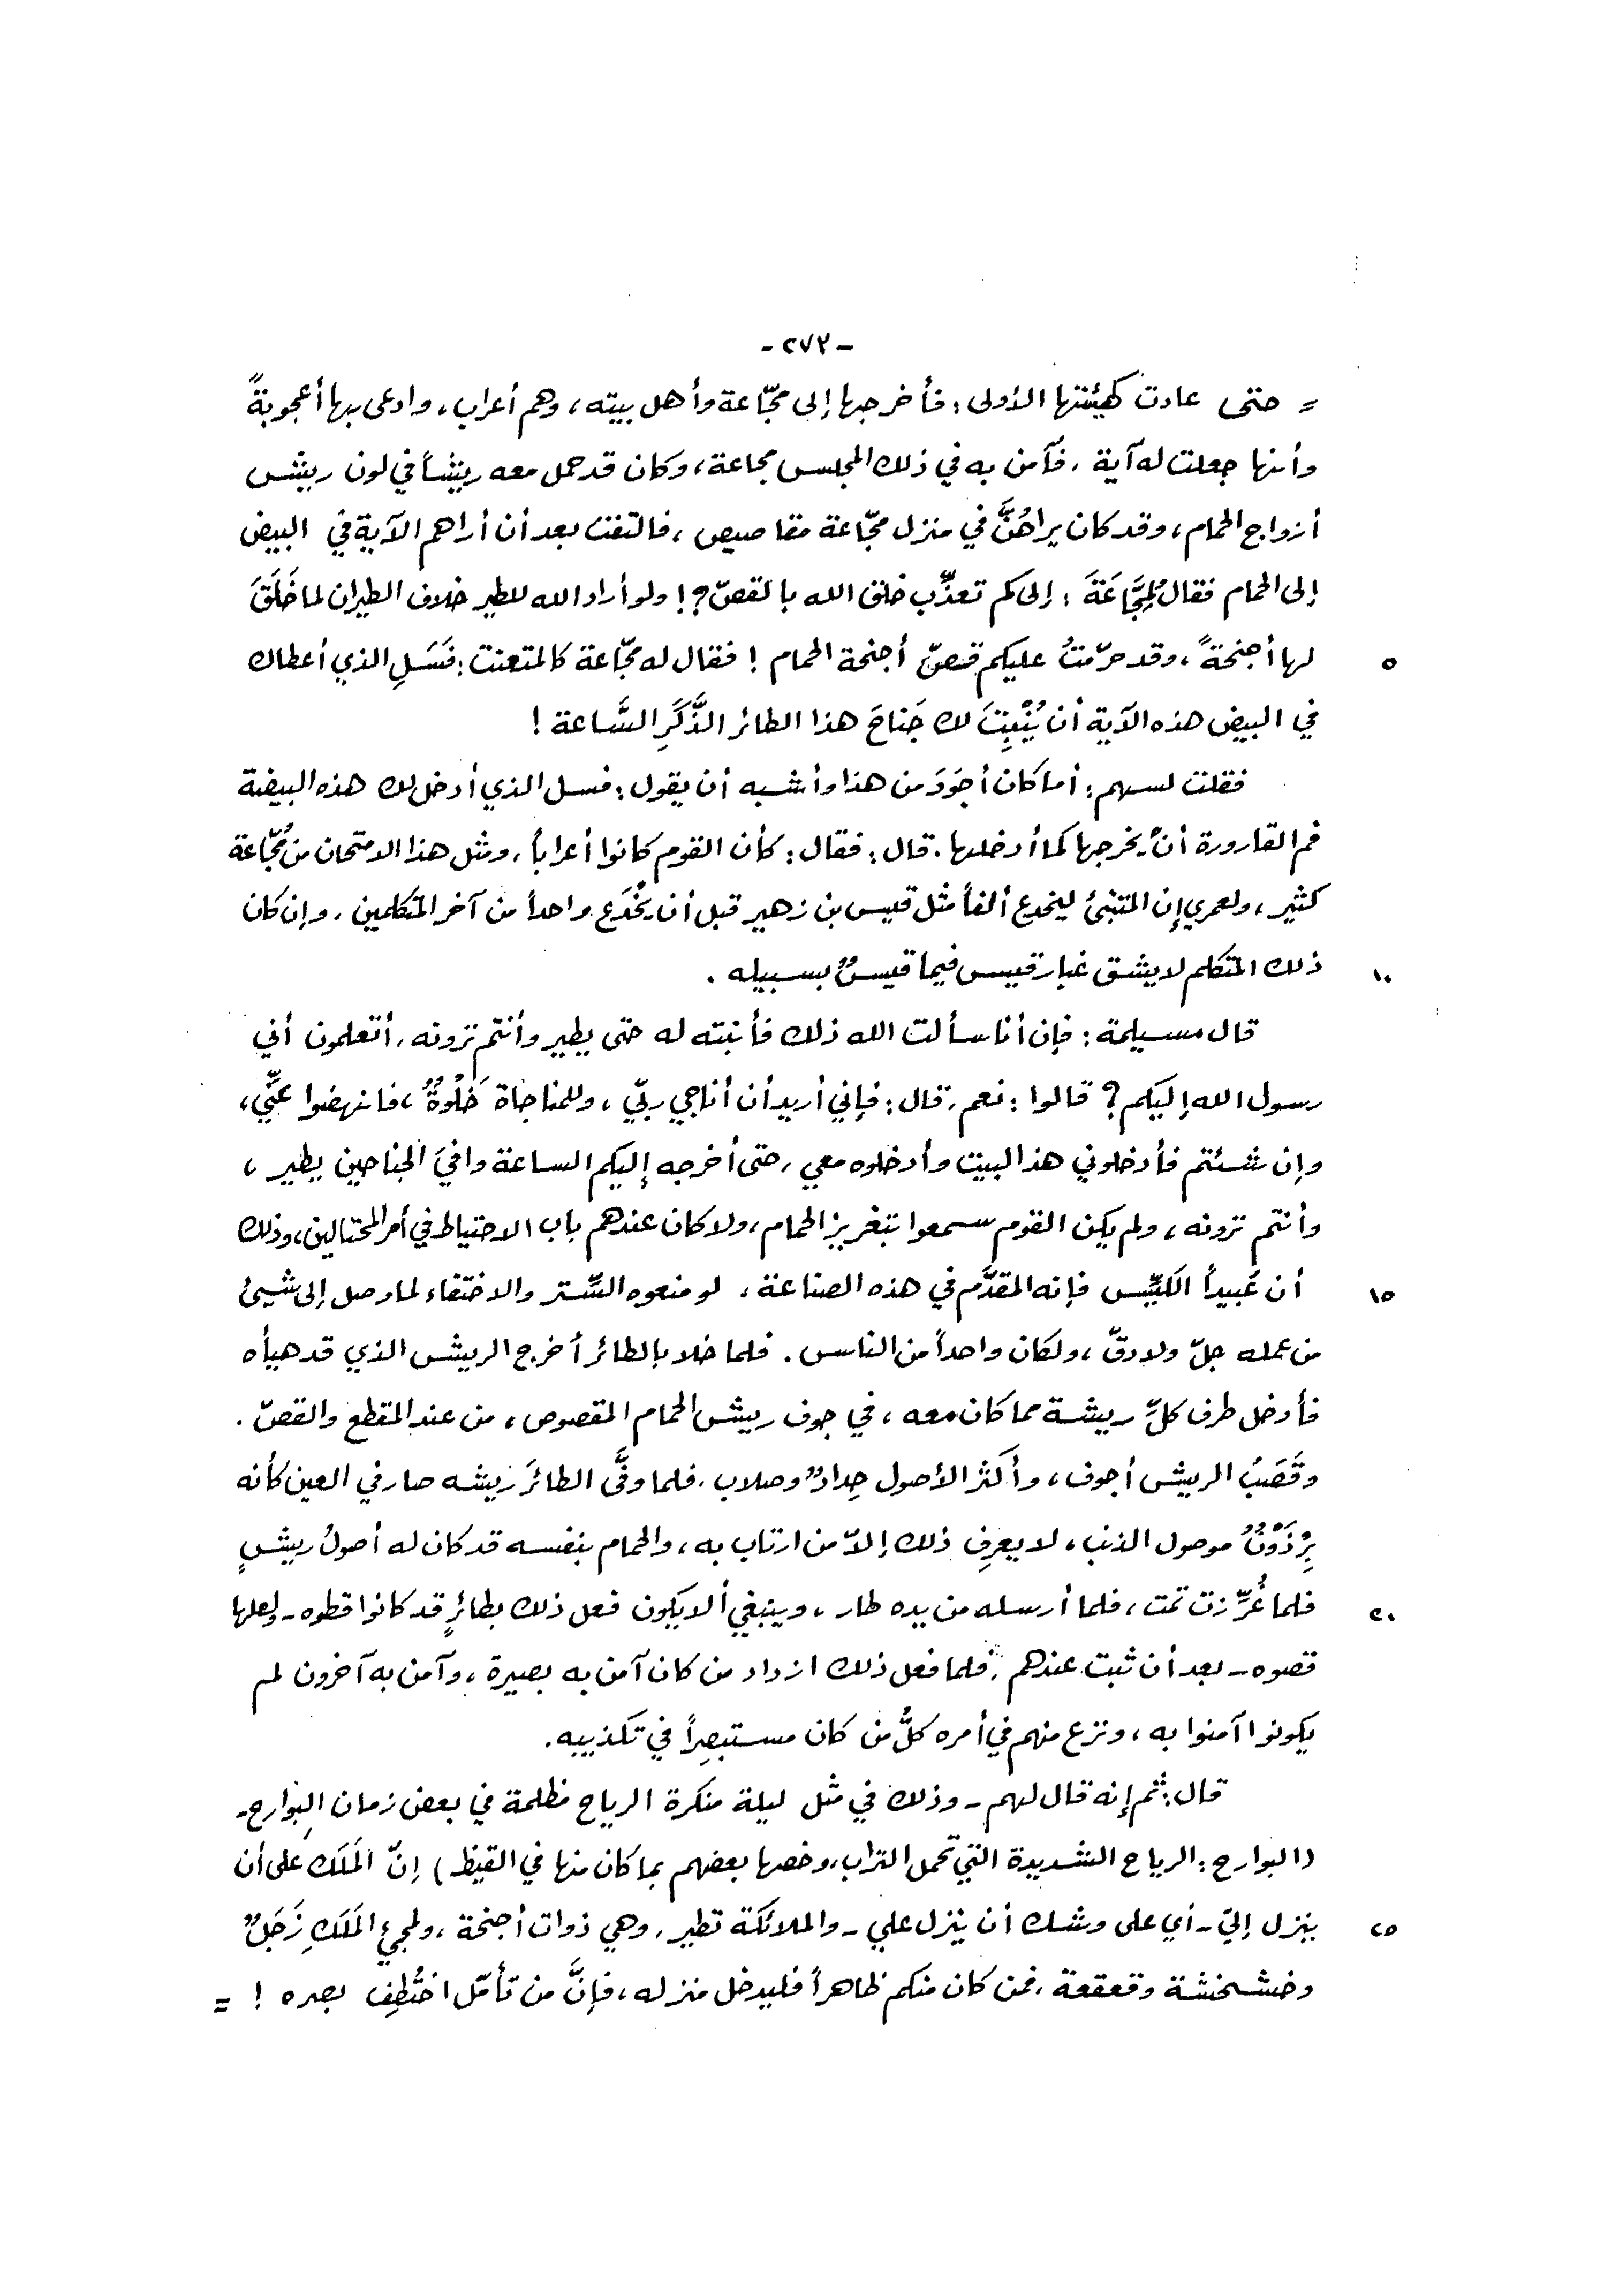 - ٢٧٢ -
= حتى عادت كهيئتها الأولى : فأخرجها إلى مجّاعة وأهل بيته ، وهم أعراب ، وادعى بها أعجوبةً
وأنها جعلت له آية ، فآمن به في ذلك المجلس مجاعة ، وكان قد حمل معه ريشاً في لون ريش
أزواج الحمام ، وقد كان يراهُنَّ في منزل مجّاعة مقاصيص ، فالتفت بعد أن أراهم الآية في البيض
إلى الحمام فقال لِمُجَّاعَةَ : إلى كم تعذِّب خلق الله بالقصّ ؟! ولو أراد الله للطير خلاف الطيران لما خَلَقَ
لها أجنحةً ، وقد حرّمتُ عليكم قصّ أجنحة الحمام ! فقال له مجّاعة كالمتعنت : فَسَلِ الذي أعطاك ٥
في البيض هذه الآية أن يُنْبِتَ لك جَناحَ هذا الطائر الذَّكَرِ السَّاعة !
فقلت لسهم : أما كان أجوَدَ من هذا وأشبه أن يقول : فسل الذي أدخل لك هذه البيضة
فم القارورة أن يخرجها كما أدخلها . قال : فقال : كأن القوم كانوا أعراباً ، ومثل هذا الامتحان من مُجّاعة
كثير ، ولعمري إن المتنبئ ليخدع ألفاً مثل قيس بن زهير قبل أن يَخْدَع واحداً من آخر المتكلمين ، وإن كان
ذلك المتكلم لا يشق غبار قيس فيما قيسٌ بسبيله . ١٠
قال مسيلمة : فإن أنا سألت الله ذلك فأنبته له حتى يطير وأنتم ترونه ، أتعلمون أني
رسول الله إليكم ؟ قالوا : نعم ، قال : فإني أريد أن أناجي ربّي ، وللمناجاة خَلْوةٌ ، فانهضوا عنّي ،
وإن شئتم فأدخلوني هذا البيت وأدخلوه معي ، حتى أخرجه إليكم الساعة وافيَ الجناحين يطير ،
وأنتم ترونه ، ولم يكن القوم سمعوا بتغريز الحمام ، ولا كان عندهم باب الاحتياط في أمر المحتالين ، وذلك
أن عُبيداً الكيِّس فإنه المقدَّم في هذه الصناعة ، لو منعوه السِّتر والاختفاء لما وصل إلى شيئ ١٥
من عمله جلّ ولا دقّ ، ولكان واحداً من الناس . فلما خلا بالطائر أخرج الريش الذي قد هيأه
فأدخل طرف كلِّ ريشة مما كان معه ، في جوف ريش الحمام المقصوص ، من عند المقطع والقصّ .
وقَصَبُ الريش أجوف ، وأكثر الأصول حِدادٌ وصلاب ، فلما وفَّى الطائرَ ريشه صار في العين كأنه
بِرْذَوْنٌ موصول الذنب ، لا يعرِف ذلك إلاّ من ارتاب به ، والحمام بنفسه قد كان له أصولُ ريشٍ
فلما غُرِّزت تمت ، فلما أرسله من يده طار ، وينبغي ألا يكون فعل ذلك بطائرٍ قد كانوا قطوه - ولعلها ٢٠
قصوه - بعد أن ثبت عندهم . فلما فعل ذلك ازداد من كان آمن به بصيرة ، وآمن به آخرون لم
يكونوا آمنوا به ، ونزع منهم في أمره كلُّ من كان مستبصِراً في تكذيبه .
قال : ثم إنه قال لهم - وذلك في مثل ليلة منكرة الرياح مظلمة في بعض زمان البوارح -
( البوارح : الرياح الشديدة التي تحمل التراب ، وخصها بعضهم بما كان منها في القيظ ) إنّ المَلَك على أن
ينزل إليّ - أي على وشك أن ينزل علي - والملائكة تطير ، وهي ذوات أجنحة ، ولمجيء المَلَكِ زَجَلٌ ٢٥
وخشخشة وقعقعة ، فمن كان منكم ظاهراً فليدخل منزله ، فإنَّ من تأمّل اختُطِف بصره ! =